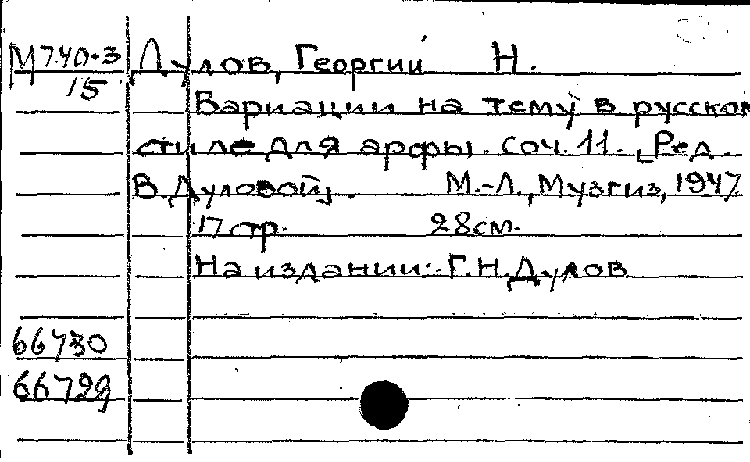 М740-3 Дулов, Георгий Н.
15
Вариации на тему в русском
стиле для арфы. Соч. 11. [Ред.
В. Дуловой]. М.-Л., Музгиз, 1947
17 стр. 28 см.
На издании: Г.Н. Дулов
66730
66729